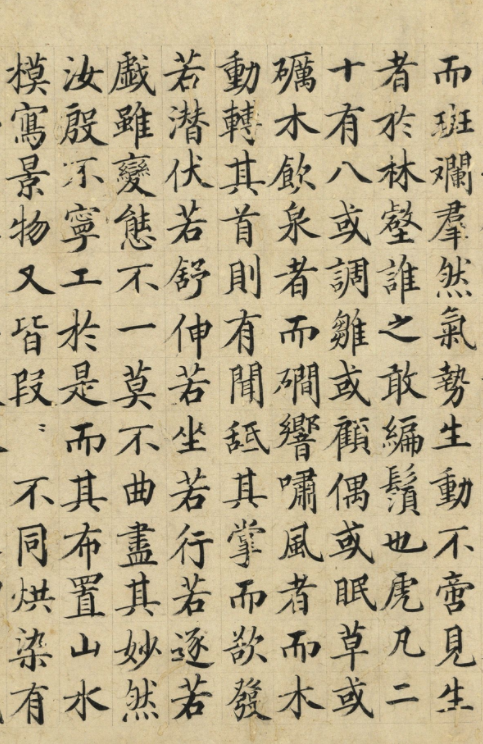 而斑斕羣然氣勢生動不啻見生
者於林壑誰之敢編鬚也虎凡二
十有八或調雛或顧偶或眠草或
礪木飲泉者而磵響嘯風者而木
動轉其首則有聞舐其掌而欲發
若潛伏若舒伸若坐若行若逐若
戲雖變態不一莫不曲盡其妙然
汝殷不寧工於是而其布置山水
模寫景物又皆段〻不同烘染有